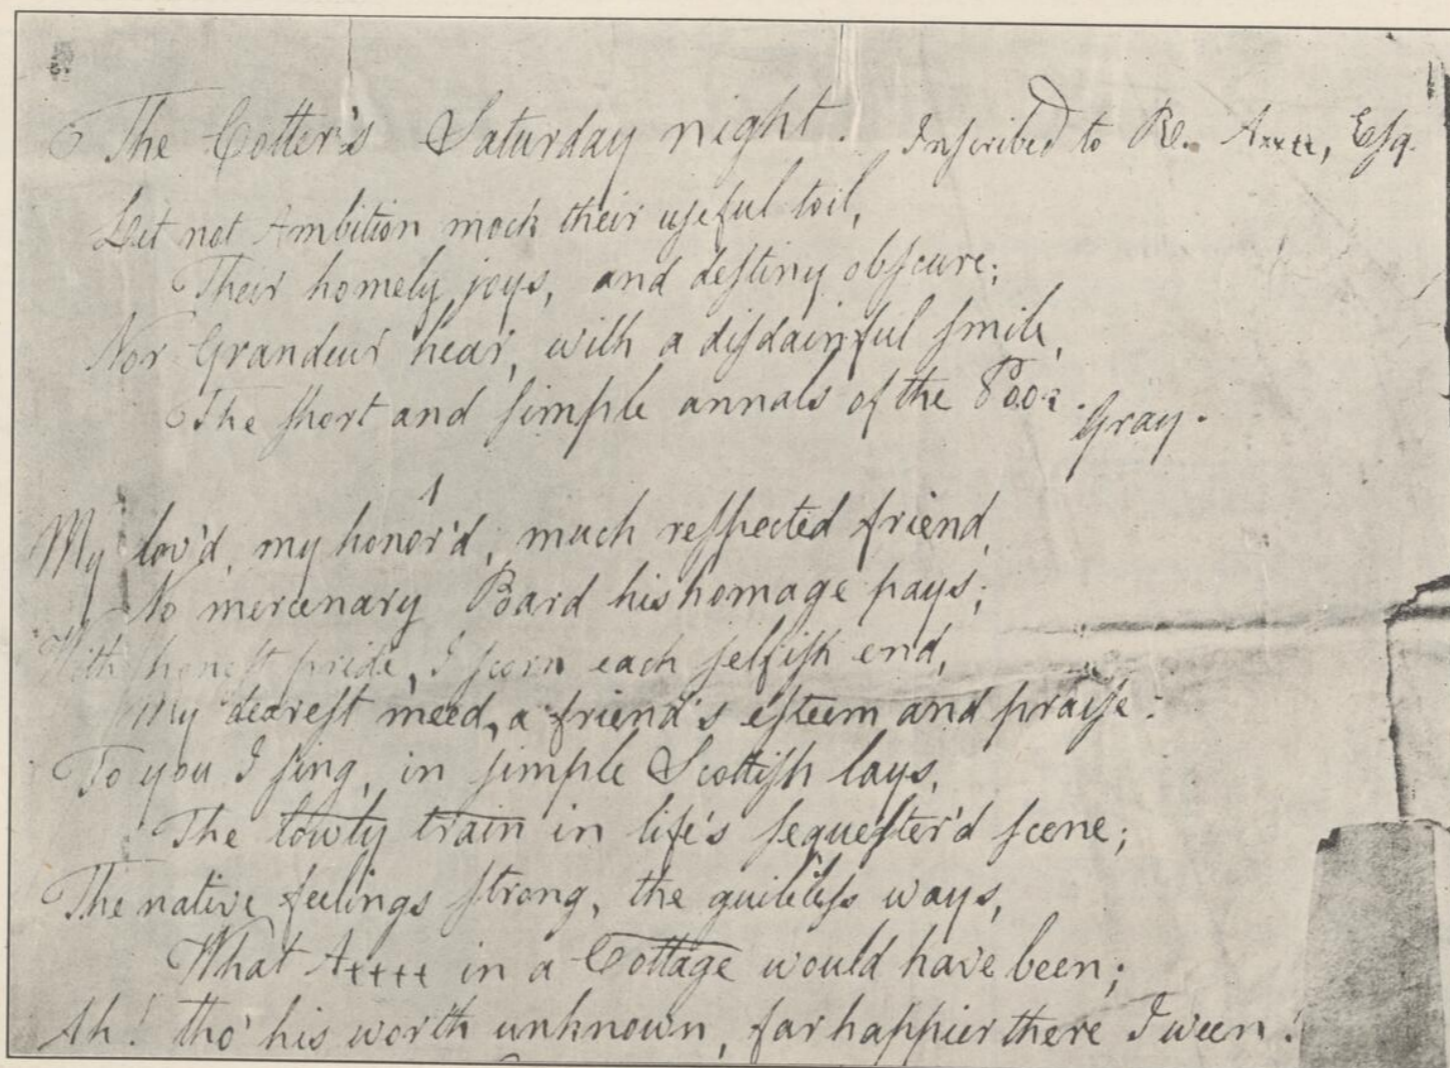 The Cotter's Saturday night. Inscribed to R. A××××, Esq.
Let not Ambition mock their useful toil,
Their homely joys, and destiny obscure;
Nor Grandeur hear, with a disdainful smile,
The short and simple annals of the Poor. Gray.
1
My lov'd, my honor'd, much respected friend,
No mercenary Bard his homage pays;
With honest pride, I scorn each selfish end,
My dearest meed, a friend's esteem and praise:
To you I sing, in simple Scottish lays,
The lowly train in life's sequester'd scene;
The native feelings strong, the guileless ways,
What A×××× in a Cottage would have been;
Ah! tho' his worth unknown, far happier there I ween!